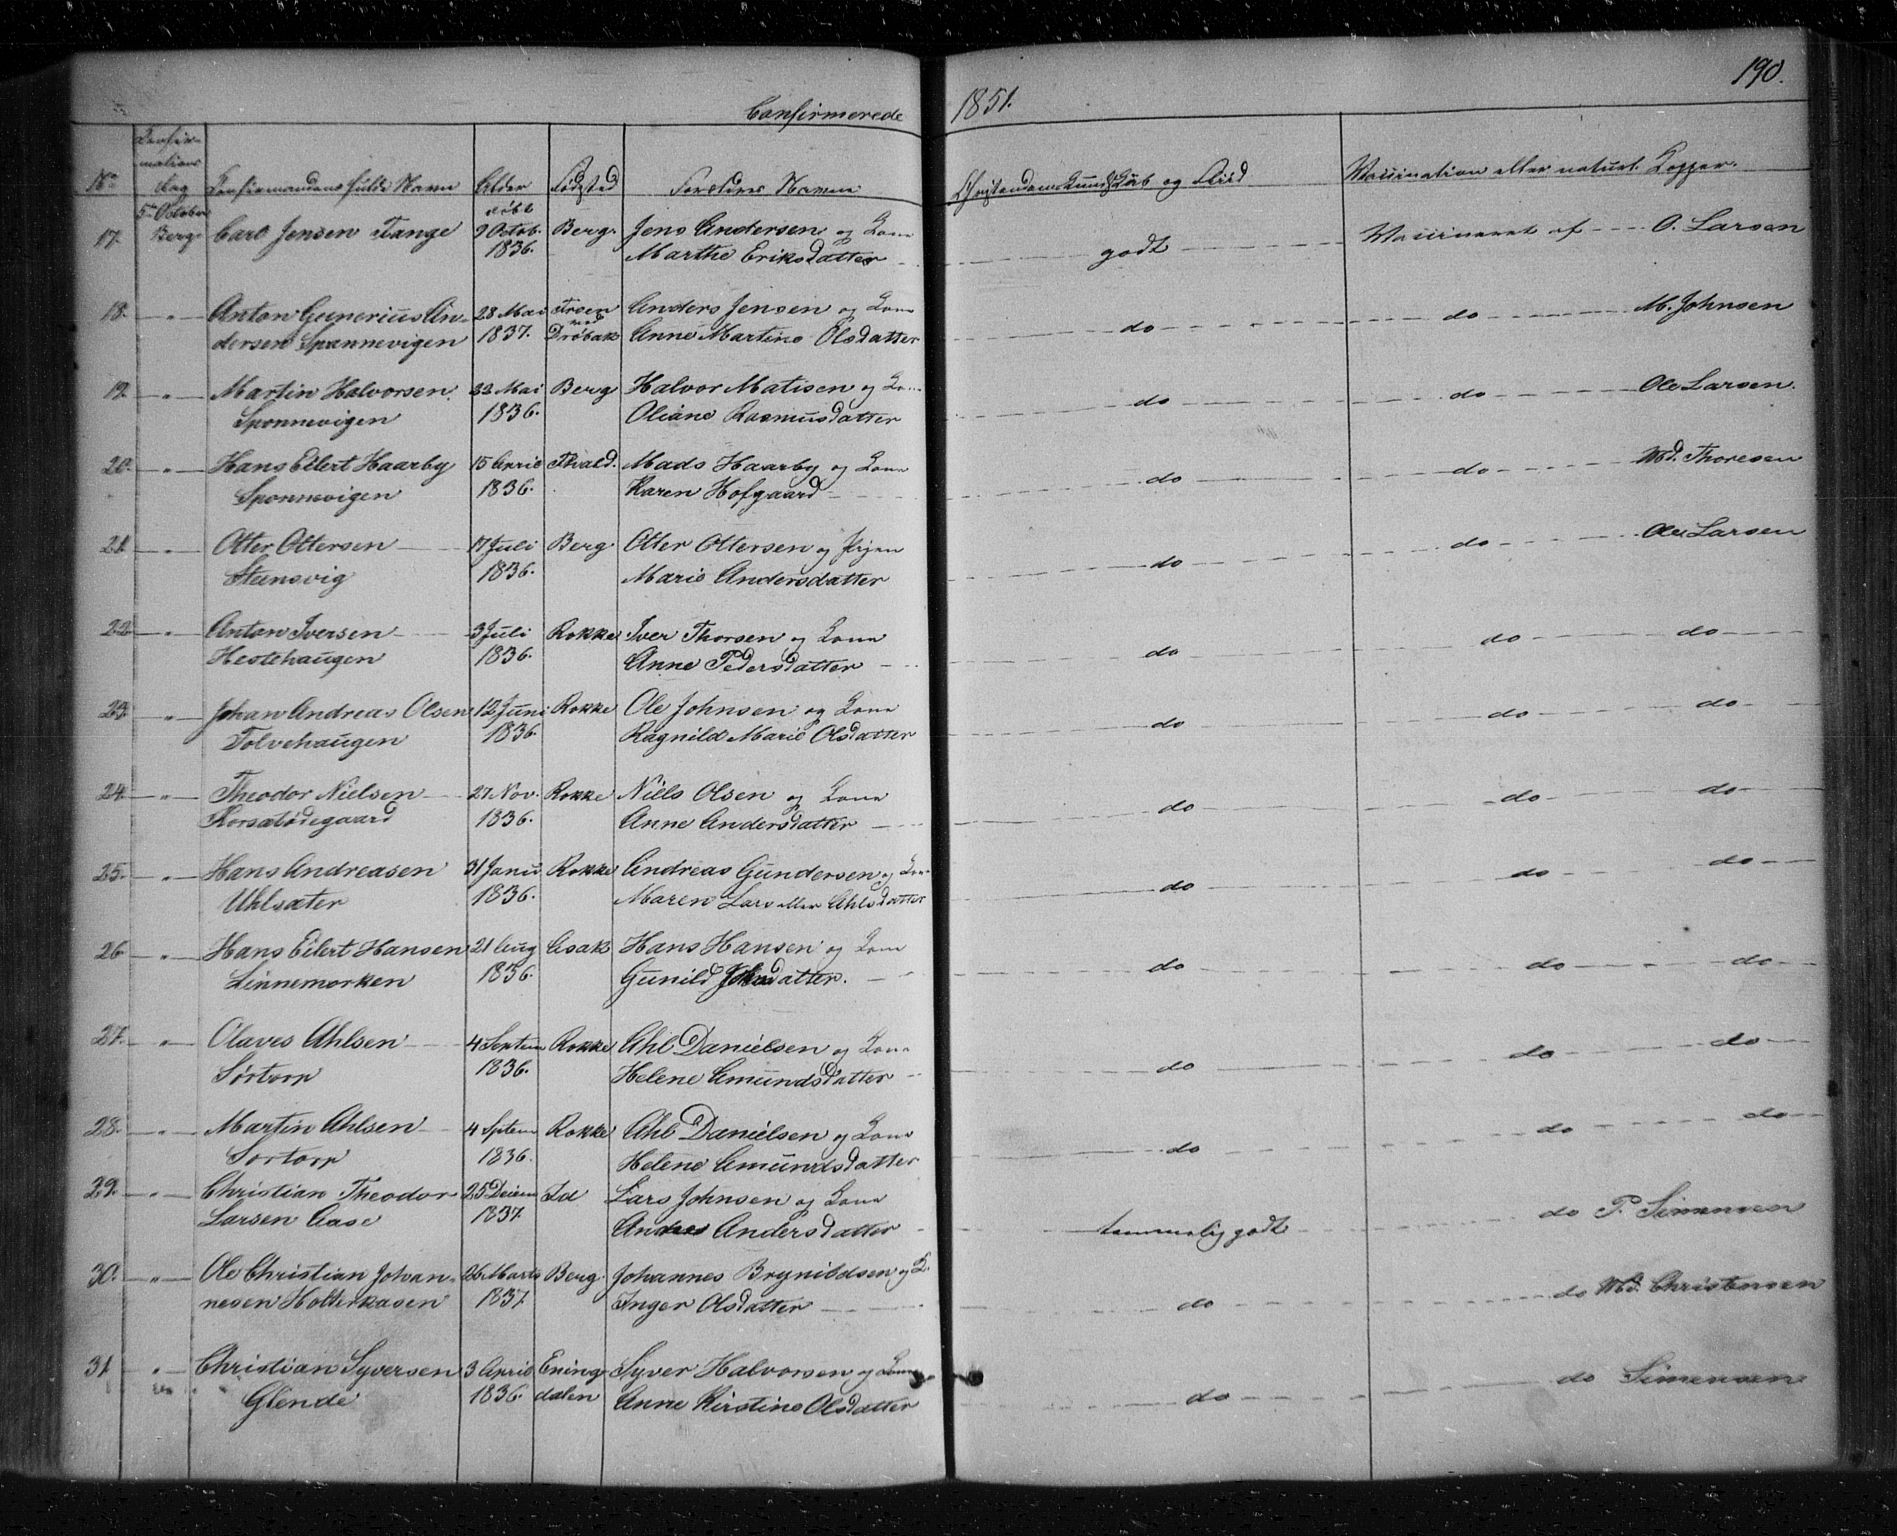 190.
Confirmerede 1851.
No Confirmations Dag Confirmandens fulde Navn Alder Fødested Forældres Navne Christendoms Kundskab og Flid Vaccination eller naturl. Kopper.
17. 5te October Berg Carl Jensen Tange døbt 9 Octob. 1836. Berg. Jens Andersen og Kone godt Vaccineret af O. Larsen
Marthe Eriksdatter
18. " Anton Gunerius An- 28 Mai Anders Jensen og Kone do do M. Johnsen
dersen Sponnevigen 1837. Drøbak Anne Martine Olsdatter
19. " Martin Halvorsen 22 Mai Berg Halvor Matisen og Kone do do Ole Larsen.
Sponnevigen 1836. Oliane Rasmusdatter
20. " Hans Eilert Haarby 15 April Hvald. Mads Haarby og Kone do do Md. Thoresen
Sponnevigen 1836. Karen Hofgaard
21. " Otter Ottersen 17 Juli Berg Otter Ottersen og Pigen do do Ole Larsen
Steensvig 1836. Marie Andersdatter
22 " Anton Iversen 3 Juli Rokke Iver Thorsen og Kone do do do
Hestehaugen 1836. Anne Pedersdatter
23. " Johan Andreas Olsen 12 Juni Rokke Ole Johnsen og Kone do do do
Tolvehaugen 1836. Ragnild Marie Olsdatter
24 " Theodor Nielsen 27. Nov. Rokke Niels Olsen og Kone do do do
Korsætødegaard 1836. Anne Andersdatter
25. " Hans Andreasen 31 Janu Rokke Andreas Gundersen og Kone do do do
Uhlsæter 1836. Maren Lars eller Ahlsdatter
26 " Hans Eilert Hansen 21 Aug Asak Hans Hansen og Kone do do do
Linnemorken 1836. Gunild Johnsdatter.
27. " Olaves Ahlsen 4 Septem Rokke Ahl Danielsen og Kone do do do
Sørtorp 1836. Helene Amundsdatter
28. " Martin Ahlsen 4 Septem Rokke Ahl Danielsen og Kone do do do
Sørtorp 1836. Helene Amundsdatter
29. " Christian Theodor 25 Decem Id Lars Johnsen og Kone temmelig godt do P. Simensen
Larsen Aase 1837. Andersdatter
30. " Ole Christian Johan- 26 Marts Berg. Johannes Brynildsen og K. do do Md. Christensen
nesen 1837. Inger Olsdatter
31 " Christian Syversen 3 April Ening- Syver Halvorsen og Kone do do Simensen
Glende 1836. dalen Anne Kirstine Olsdatter